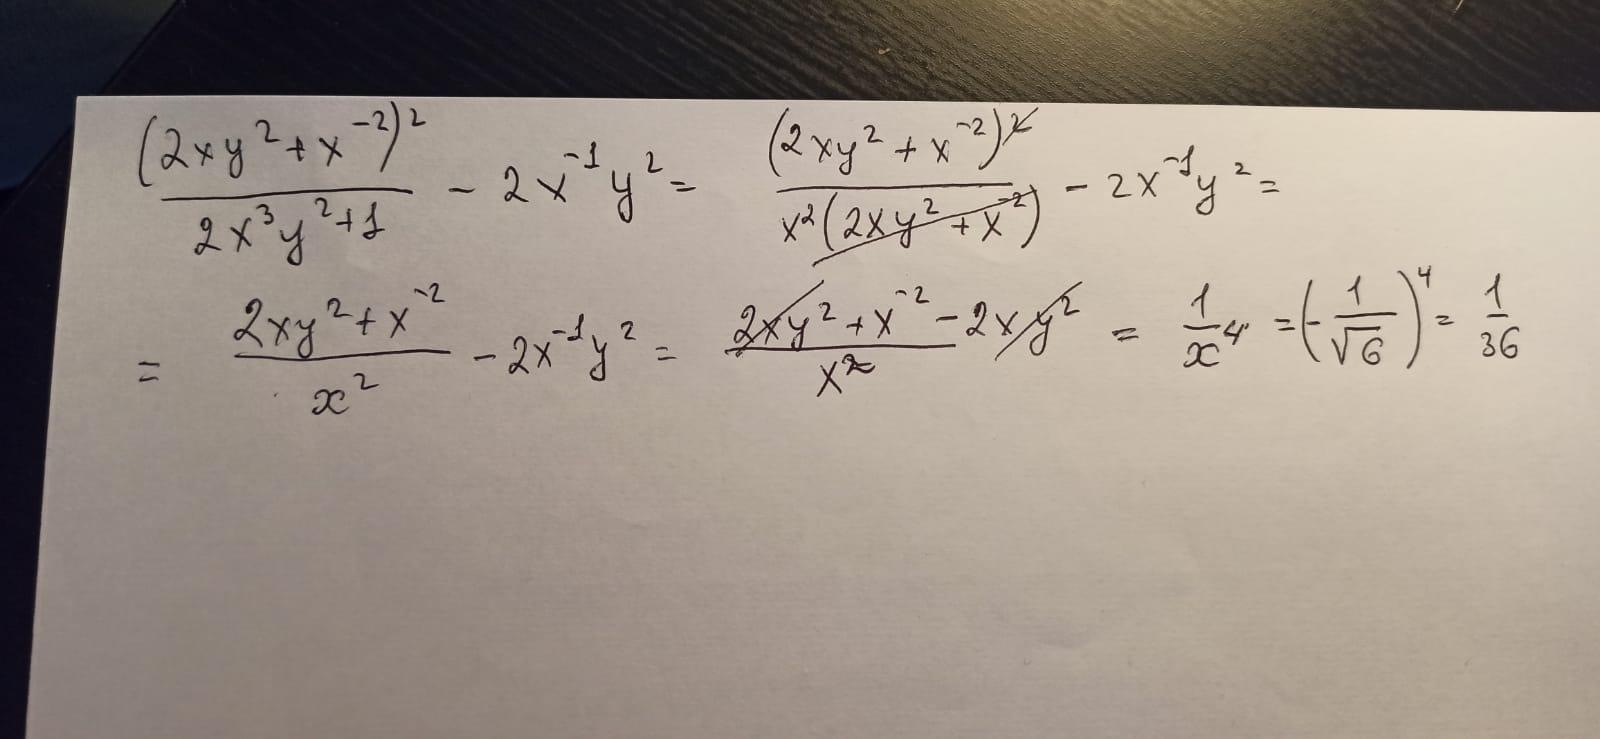 (2xy²+x⁻²)²/(2x³y²+1) - 2x⁻¹y² = (2xy²+x⁻²)²/(x²(2xy²+x⁻²)) - 2x⁻¹y² =
= (2xy²+x⁻²)/x² - 2x⁻¹y² = (2xy²+x⁻²-2xy²)/x² = 1/x⁴ = (-1/√6)⁴ = 1/36